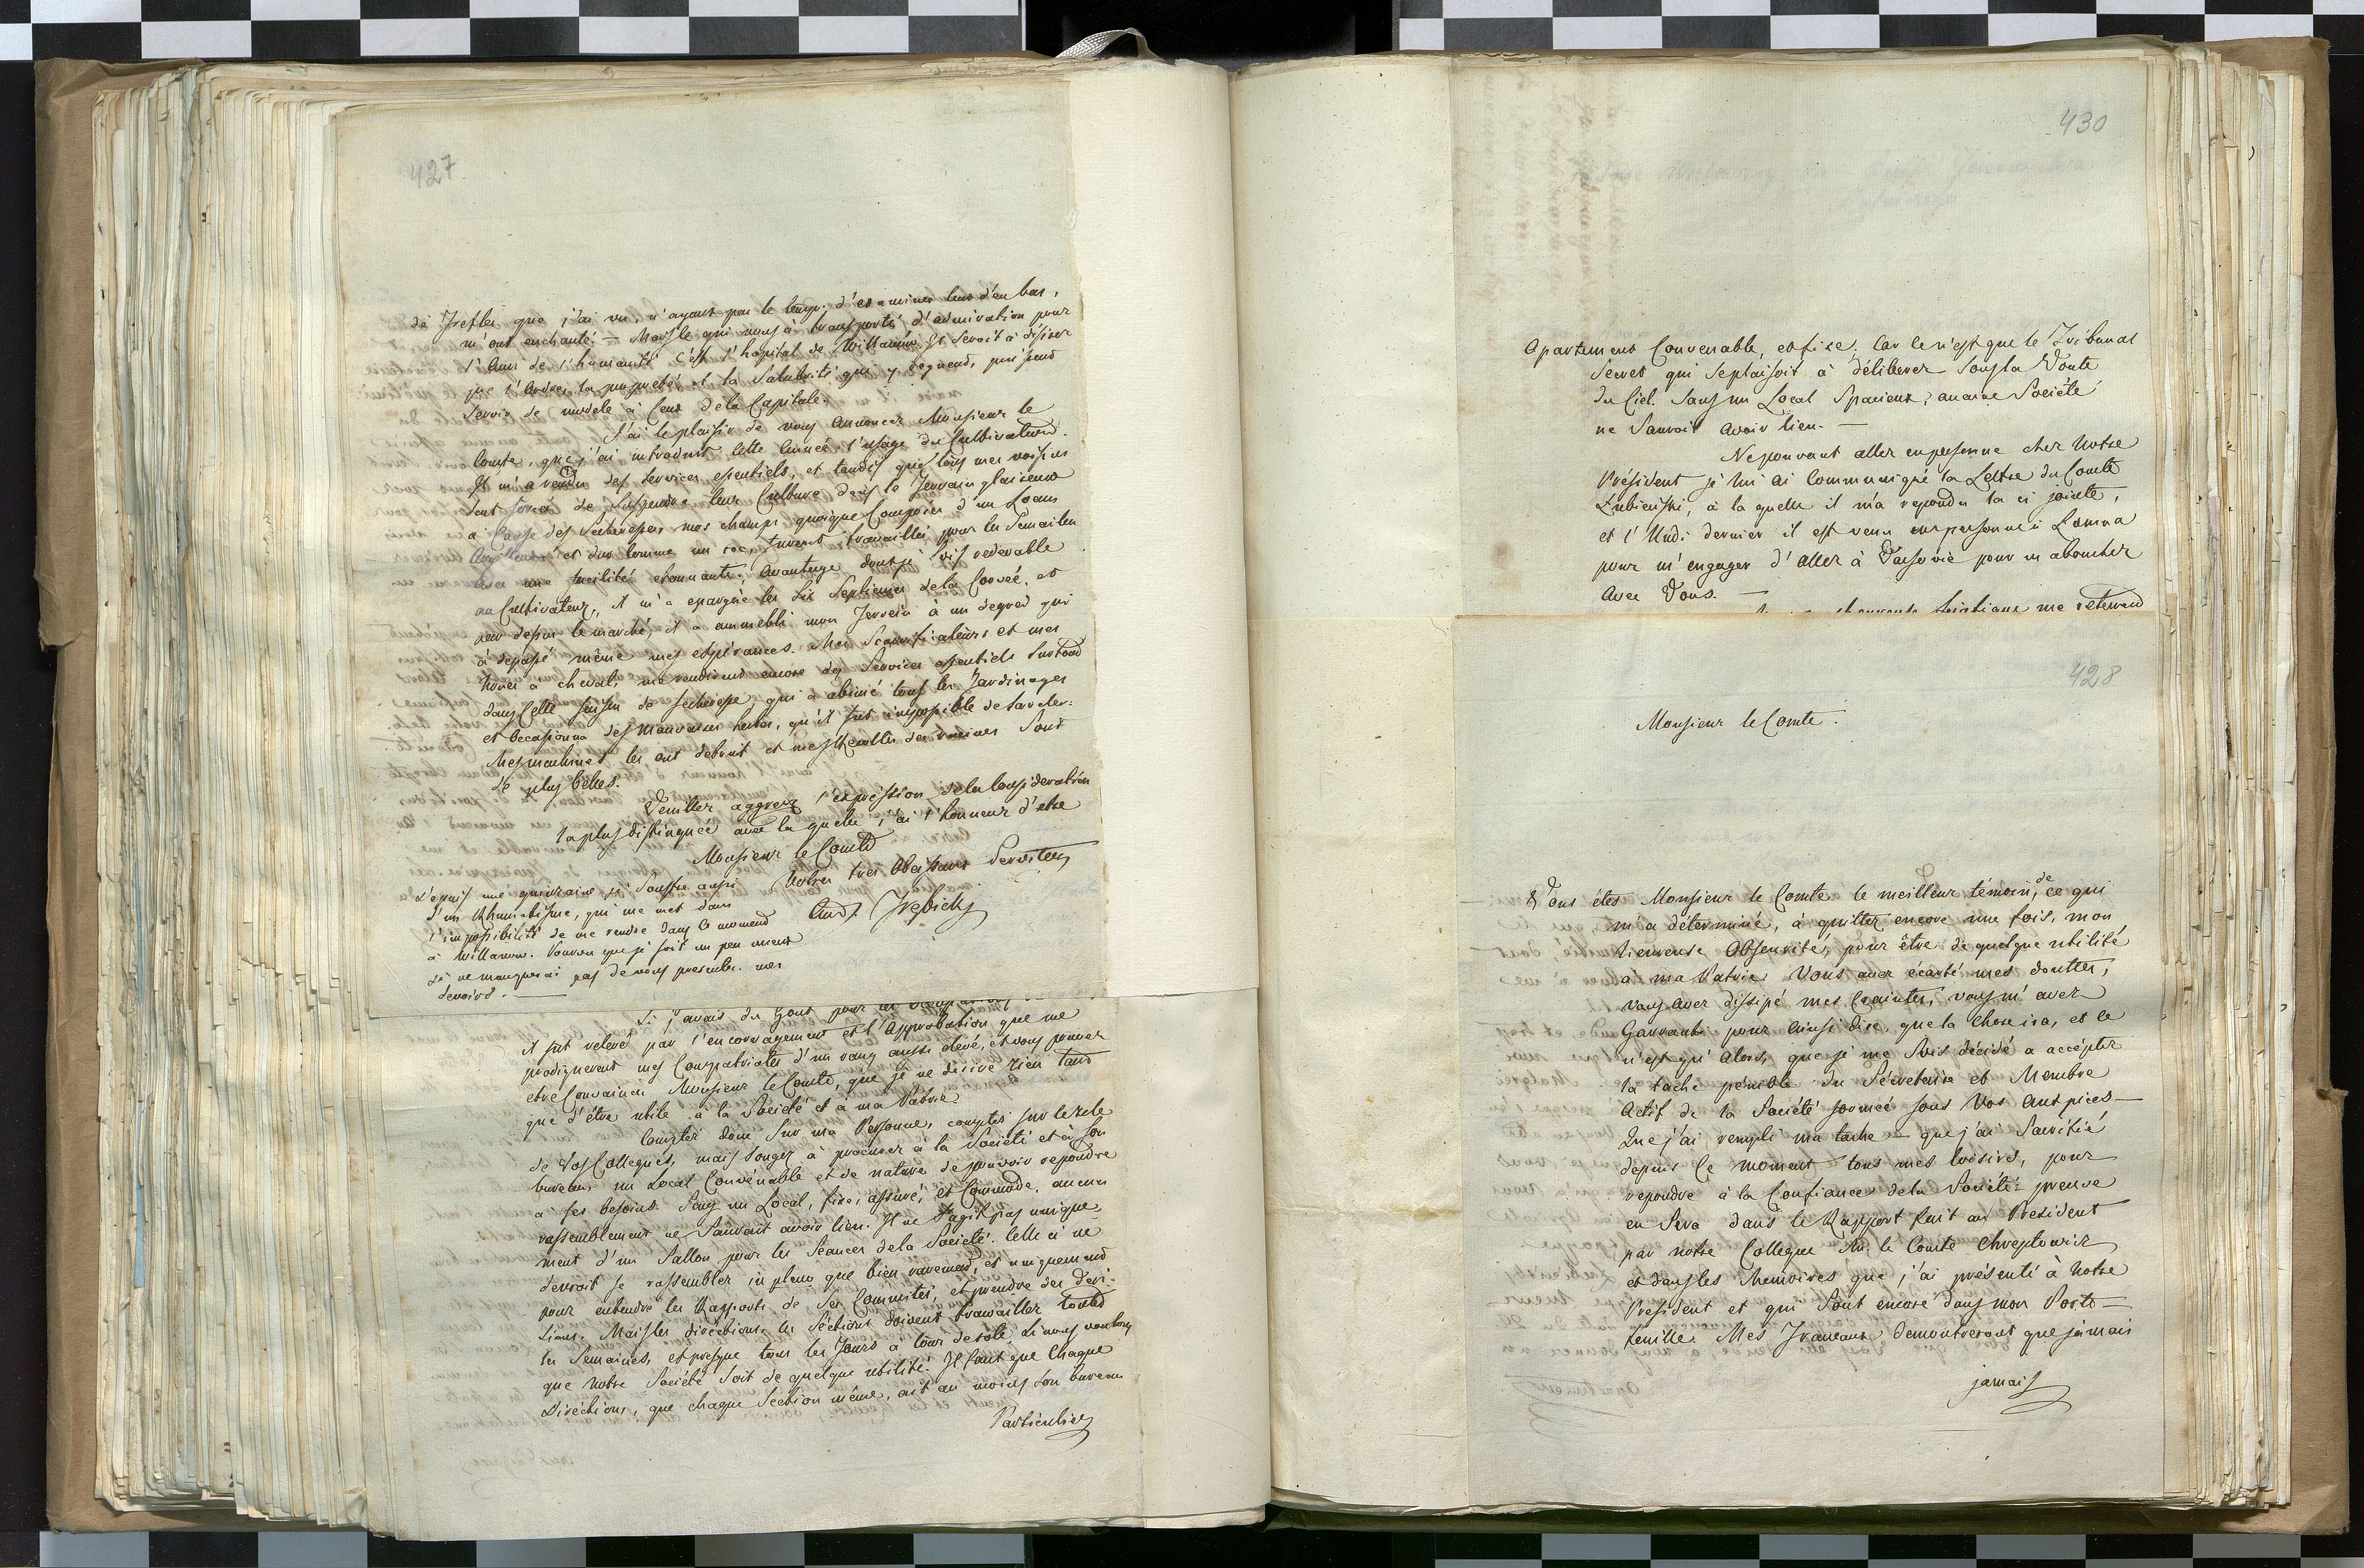 427
de Trefles que j'ai vu, n'ayant pas le temps d'examiner ceux d'en bas,
m'ont enchanté. — Mais le qui nous à transporté d'admiration pour
l'Ami de l'humanité c'est l'hopital de Willanów. Il seroit à désirer
que l'ordre, la propreté et la Salubrité qui y regnent, puissent
servir de modele à Ceux de la Capitale.
J'ai le plaisir de vous Annoncer Monsieur le
Comte, que j'ai introduit cette Année l'usage du Cultivateur.
Il m'a rendu des services essentiels, et tandis que tous mes voisins
sont forcés de suspendre leur Culture dans le Terrain glaiseux
à Cause des secheresses, mes champs quoique Composés d'un Loam
et dur comme un roc, furent travaillés pour les Semailles
avec une facilité etonnante. Avantage dont je suis redevable
au Cultivateur, il m'a epargné les six Septiemes de la Corvée, et
par dessus le marché, il a ammebli mon Terrein à un degred qui
à depassé même mes espérances. Mes Scarificateurs et mes
houes à cheval, me rendirent encore des services essentiels surtout
dans Cette saison de secheresse, qui a abimé tous les Jardinages
et occasionna des mauvaises herbes, qu'il fut impossible de sarcler.
Mes machines les ont detruit et mes Recoltes des racines sont
de plus belles.
Veuillez aggreer l'expréssion de la Consideration
la plus distinguée avec la quelle j'ai l'honneur d'etre
Monsieur le Comte
Votre très Obeissant Serviteur
Depuis une quinzaine je souffre aussi
d'un Rhumatisme, qui me met dans
l'impossibilité de me rendre dans ce moment
à Willanow. Pourvu que je soit un peu mieux
je ne manquerai pas de vous presenter mes
devoirs. —
Si j'avais du Gout pour les
il fut relevé par l'encouragement et l'Approbation que me
prodiguerent mes Compatriotes d'un rang aussi elevé, et vous pouvez
etre Convaincu Monsieur le Comte, que je ne desire rien tant
que d'être utile à la Société et à ma Patrie
Comptez donc sur ma Personne, comptés sur le zele
de Vos Collegues, mais songez à procurer à la Société et à son
bureau, un Local Convenable et de nature de pouvoir repondre
a ses besoins. Sans un Local, fixe, assuré, et Commode, aucun
rassemblement ne Sauroit avoir lieu. Il ne s'agit pas unique
ment d'un Sallon pour les Séances de la Société. Celle ci ne
devroit se rassembler in pleno que bien rarement, et uniquement
pour entendre les Rapports de ses Committés, et prendre des déci-
sions. Mais les diréctions, les séctions doivent travailler toutes
les Semaines, et presque tous les Jours a tour de rôle, si nous voulons
que Notre Société soit de quelque utilité. Il faut que Chaque
Diréction, que chaque Section même, ait au moins son bureau
Particulier
430
Apartement Convenable, et fixe. Car ce n'est que le Tribunal
Secret qui se plaisoit à déliberer sous la Voute
du Ciel. Sans un Local Spacieux, aucune Société
ne Sauroit avoir lieu. —
Ne pouvant aller en personne chez Notre
Président je lui ai communiqué la Lettre du Comte
Lubieński, à la quelle il m'a repondu la ci jointe,
et l'Undi dernier il est venu en personne à Łomna
pour m'engager d'aller à Varsovie pour m'aboucher
Avec Vous. —
me retenend
428
Monsieur le Comte.
Vous êtes Monsieur le Comte le meilleur témoin, de ce qui
m'a déterminé, à quitter encore une fois, mon
heureuse Obscurité, pour être de quelque utilité
à ma Patrie. Vous avez écarté mes doutes,
vous avez dissipé mes Craintes, vous m'avez
Garranti pour Ainsi dire que la Chose ira, et ce
n'est qu'Alors, que je me suis décidé a accépter
la tache pénible du Sécretaire et Membre
Actif de la Société formée sous Vos Auspices —
Que j'ai rempli ma tache — que j'ai Sacrifié
depuis ce moment tous mes loisirs, pour
repondre à la Confiance de la Société: preuve
en Sera dans le Rapport fait au Président
par notre Collegue Mr. le Comte Chreptowicz
et dans les Memoires que j'ai présenté à Notre
President et qui sont encore dans mon Porte-
feuille. Mes Traveaux demontreront que jamais
jamais